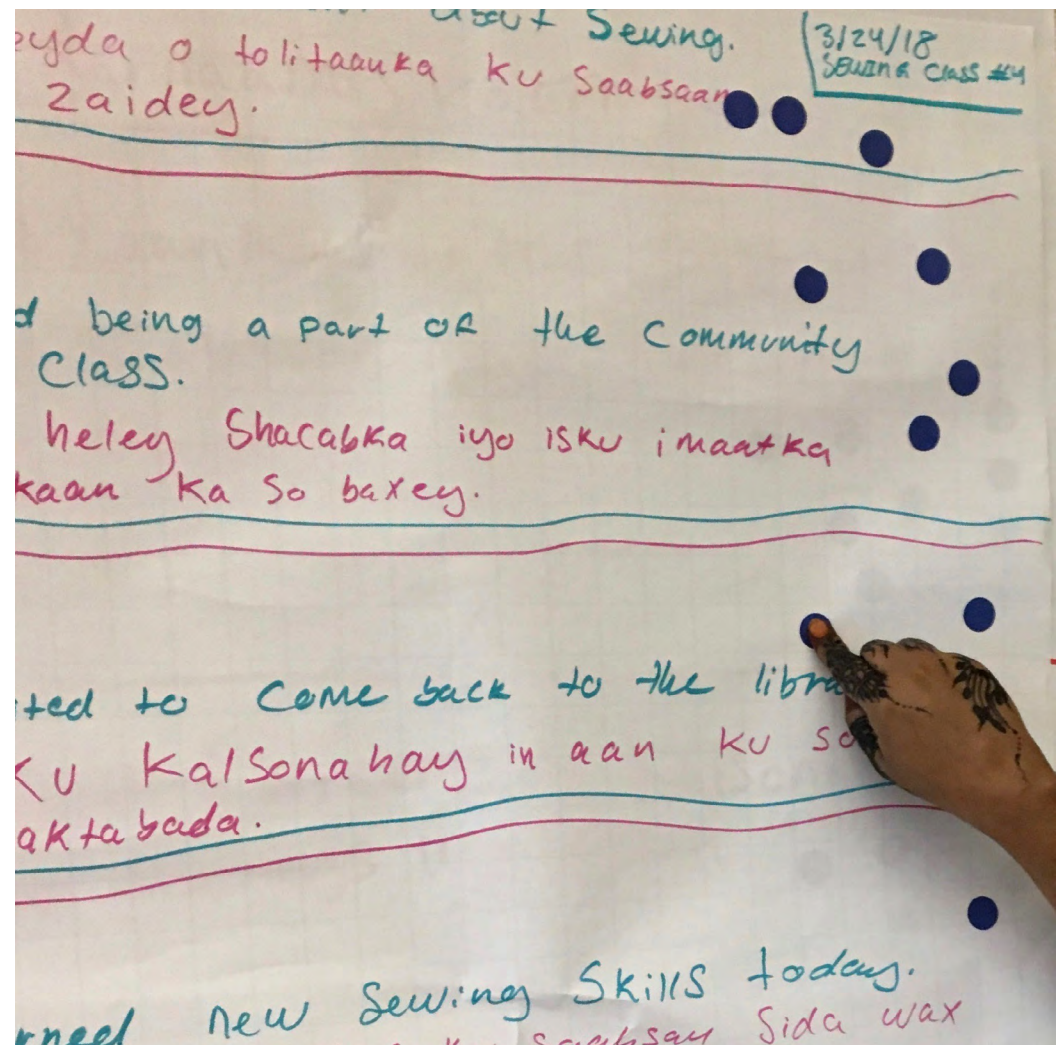 about Sewing.
3/24/18
Sewing Class #4
eyda o tolitaanka ku Saabsaan
Zaidey.
d being a part of the Community
Class.
heley Shacabka iyo isku imaatka
kaan ka so baxey.
ted to come back to the libra
Ku Kalsonahay in aan ku so
aktabada.
rned new Sewing Skills today.
Saabsan Sida wax